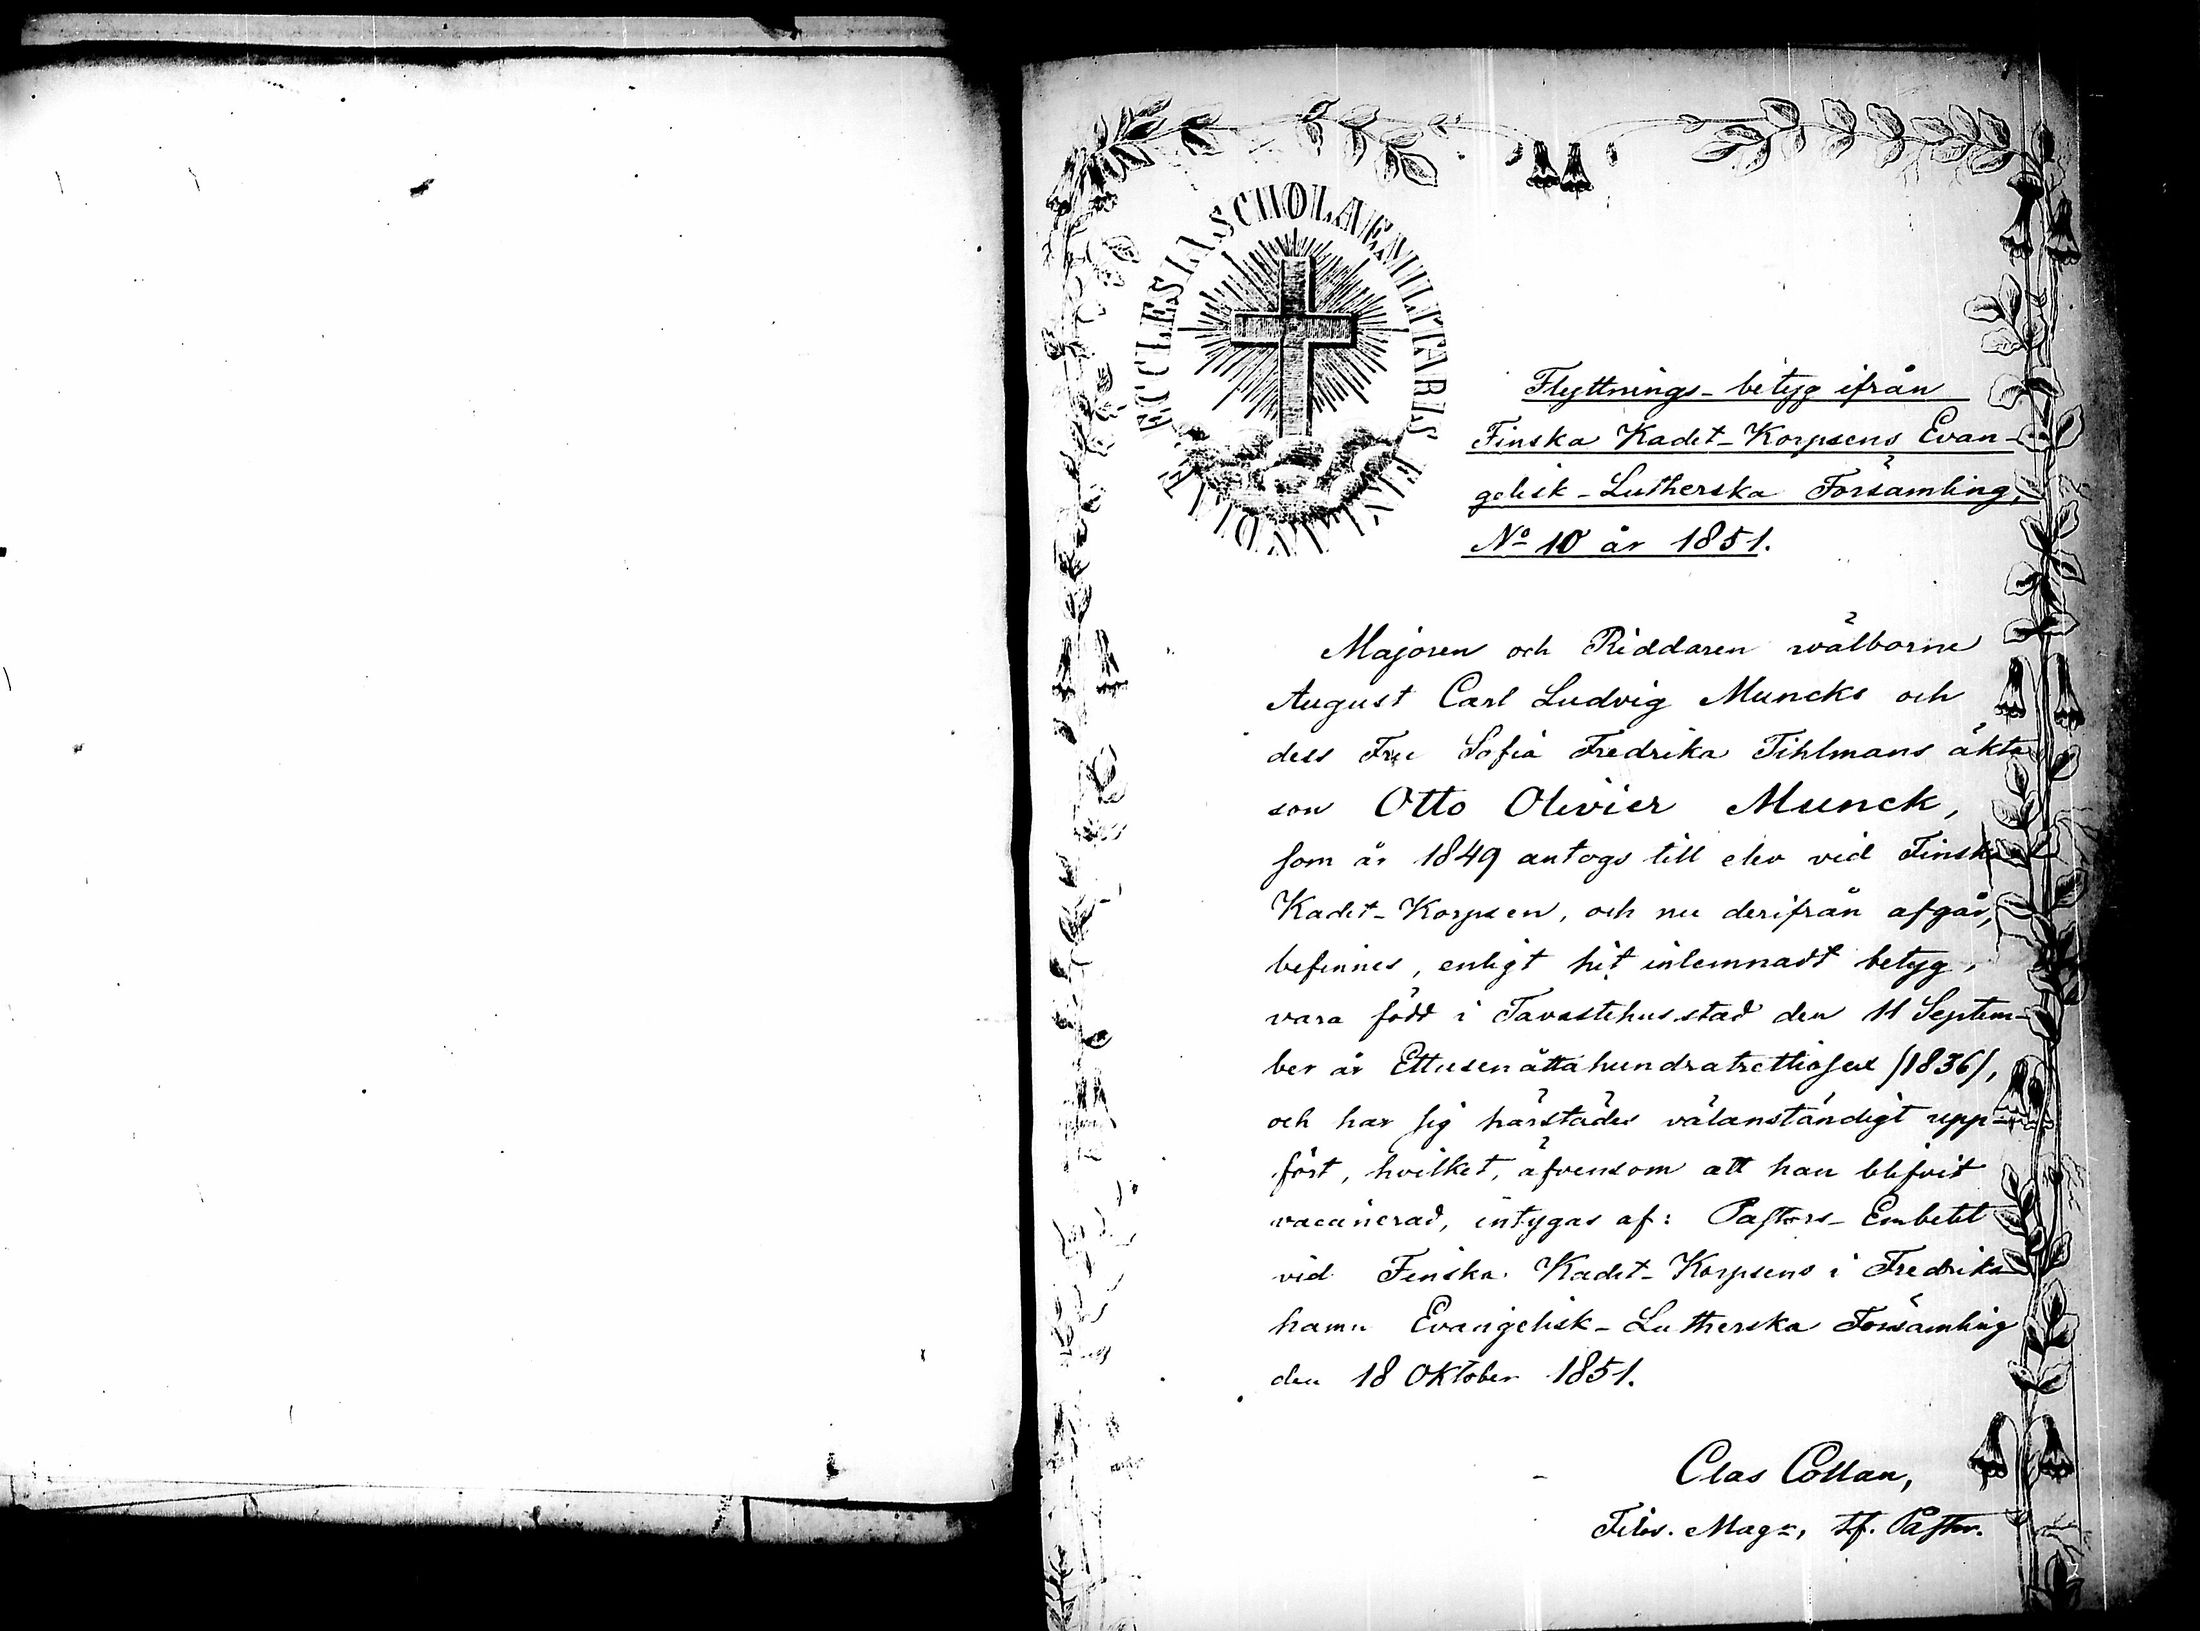 ECCLESIA SCHOLAE MILITARIS FINLANDIAE
Flyttnings-betyg ifrån
Finska Kadet-Korpsens Evan-
gelisk-Lutherska Församling,
No 10 år 1851.
Majoren och Riddaren wälborne
August Carl Ludvig Muncks och
dess Fru Sofia Fredrika Tihlmans äkta
son Otto Olivier Munck,
som år 1849 antogs till elev vid Finska
Kadet-Korpsen, och nu derifrån afgår,
befinnes, enligt hit inlemnadt betyg,
vara född i Tavastehus stad den 11 Septem-
ber år Ettusenåttahundratrettiosex (1836),
och har sig härstädes välanständigt upp-
fört, hvilket, äfvensom att han blifvit
vaccinerad, intygas af: Pastors-Embetet
vid Finska Kadet-Korpsens i Fredriks
hamn Evangelisk-Lutherska Församling
den 18 Oktober 1851.
Clas Collan,
Filos. Magr, tf. Pastor.